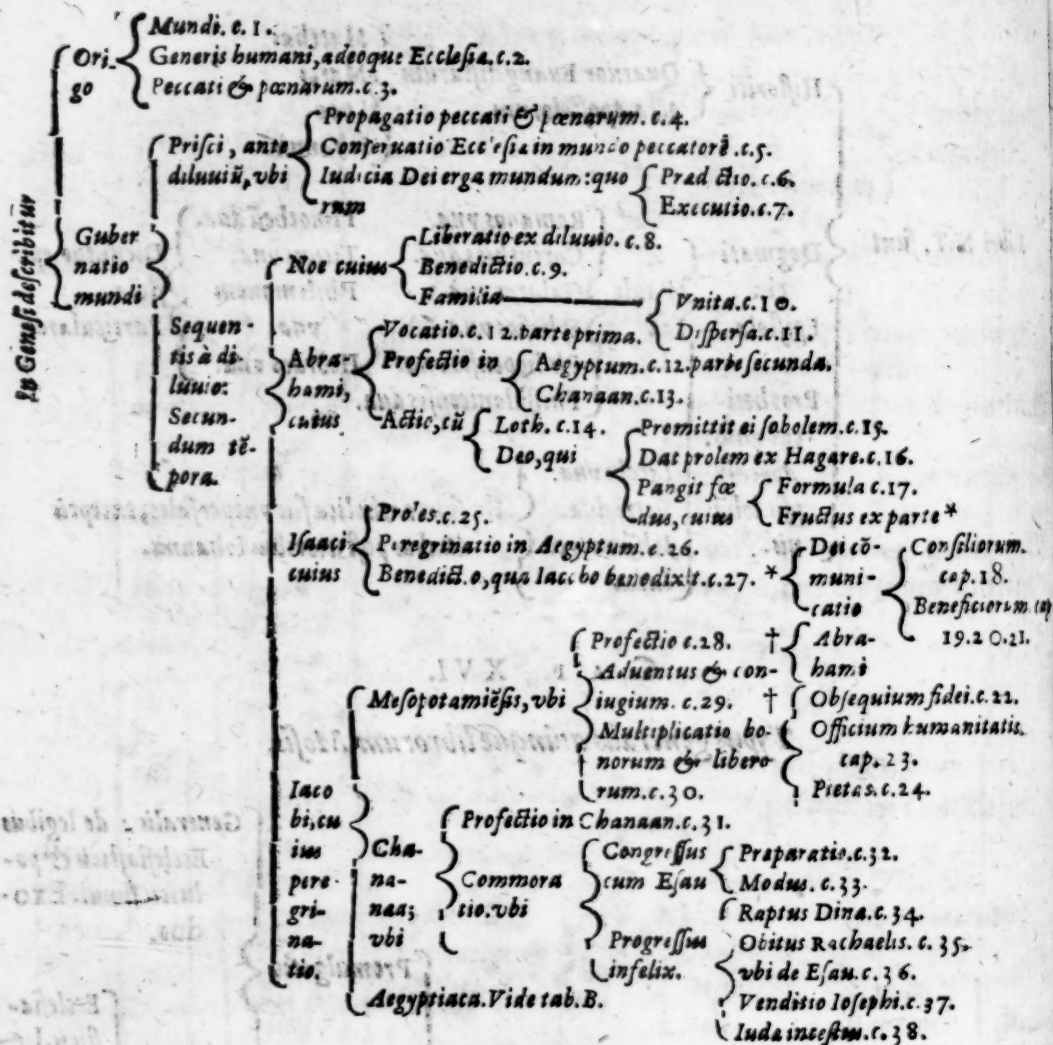 In Genesi describitur
Ori-
go
Mundi. c. 1.
Generis humani, adeoque Ecclesia. c. 2.
Peccati & pœnarum. c. 3.
Guber
natio
mundi
Prisci, ante
diluuiũ, vbi
Propagatio peccati & pœnarum. c. 4.
Conseruatio Ecclesia in mundo peccatore .c. 5.
Iudicia Dei erga mundum: quo
rum
Prædictio. c. 6.
Executio. c. 7.
Sequen-
tis à di-
luuio:
Secun-
dum tẽ-
pora.
Noe cuius
Liberatio ex diluuio. c. 8.
Benedictio. c. 9.
Familia
Vnita. c. 10.
Dispersa. c. 11.
Abra-
hami,
cuius
Vocatio. c. 12. parte prima.
Profectio in
Aegyptum. c. 12. parte secunda.
Chanaan. c. 13.
Actio, cũ
Loth. c. 14.
Deo, qui
Promittit ei sobolem. c. 15.
Dat prolem ex Hagare. c. 16.
Pangit fœ
dus, cuius
Formula c. 17.
Fructus ex parte *
Isaaci
cuius
Proles. c. 25.
Peregrinatio in Aegyptum. c. 26.
Benedict.o, qua Iacobo benedixit. c. 27.
* Dei cõ-
muni-
catio
Consiliorum.
cap. 18.
Beneficiorum
19. 20. 21.
† Abra-
hami
† Obsequium fidei. c. 22.
Officium humanitatis.
cap. 23.
Pietas. c. 24.
Iaco
bi, cu
ius
pere-
gri-
na-
tio.
Mesopotamiẽsis, vbi
Profectio c. 28.
Aduentus & con-
iugium. c. 29.
Multiplicatio bo-
norum & libero
rum. c. 30.
Cha-
na-
naa;
vbi
Profectio in Chanaan. c. 31.
Commora
tio. vbi
Congressus
cum Esau
Præparatio. c. 32.
Modus. c. 33.
Progressus
infelix.
Raptus Dina. c. 34.
Obitus Rachaelis. c. 35.
vbi de Esau. c. 36.
Venditio Iosephi. c. 37.
Iuda incestus. c. 38.
Aegyptiaca. Vide tab. B.